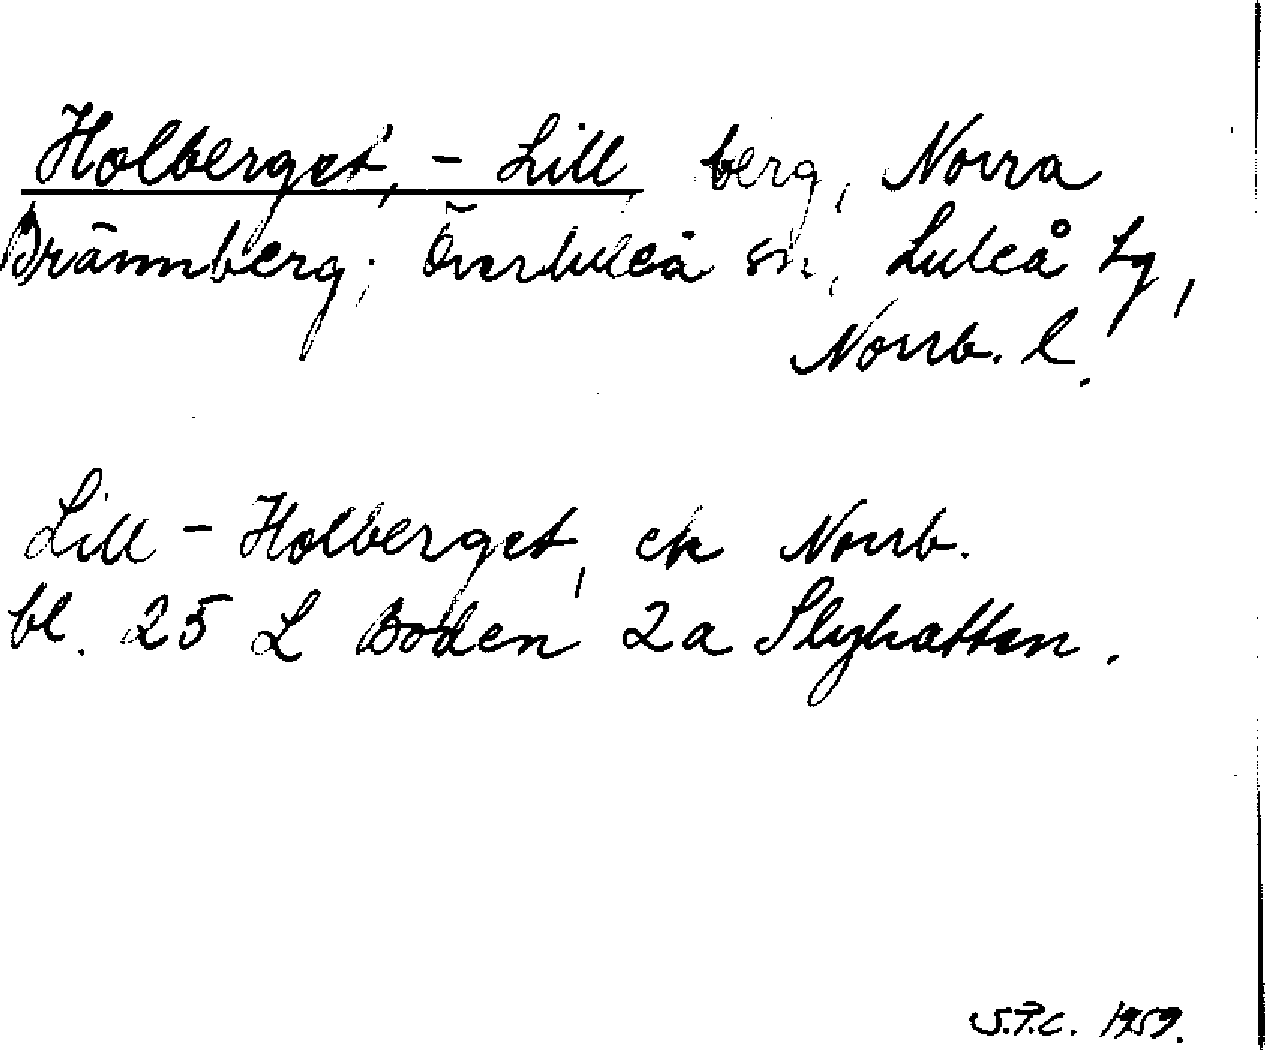 Holberget, - Lill berg, Norra
Brännberg; Överluleå sn, Luleå tg,
Norrb. l.
Lill - Holberget, ek Norrb.
bl. 25 L Boden 2a Slyhatten.
S.P.C. 1959.